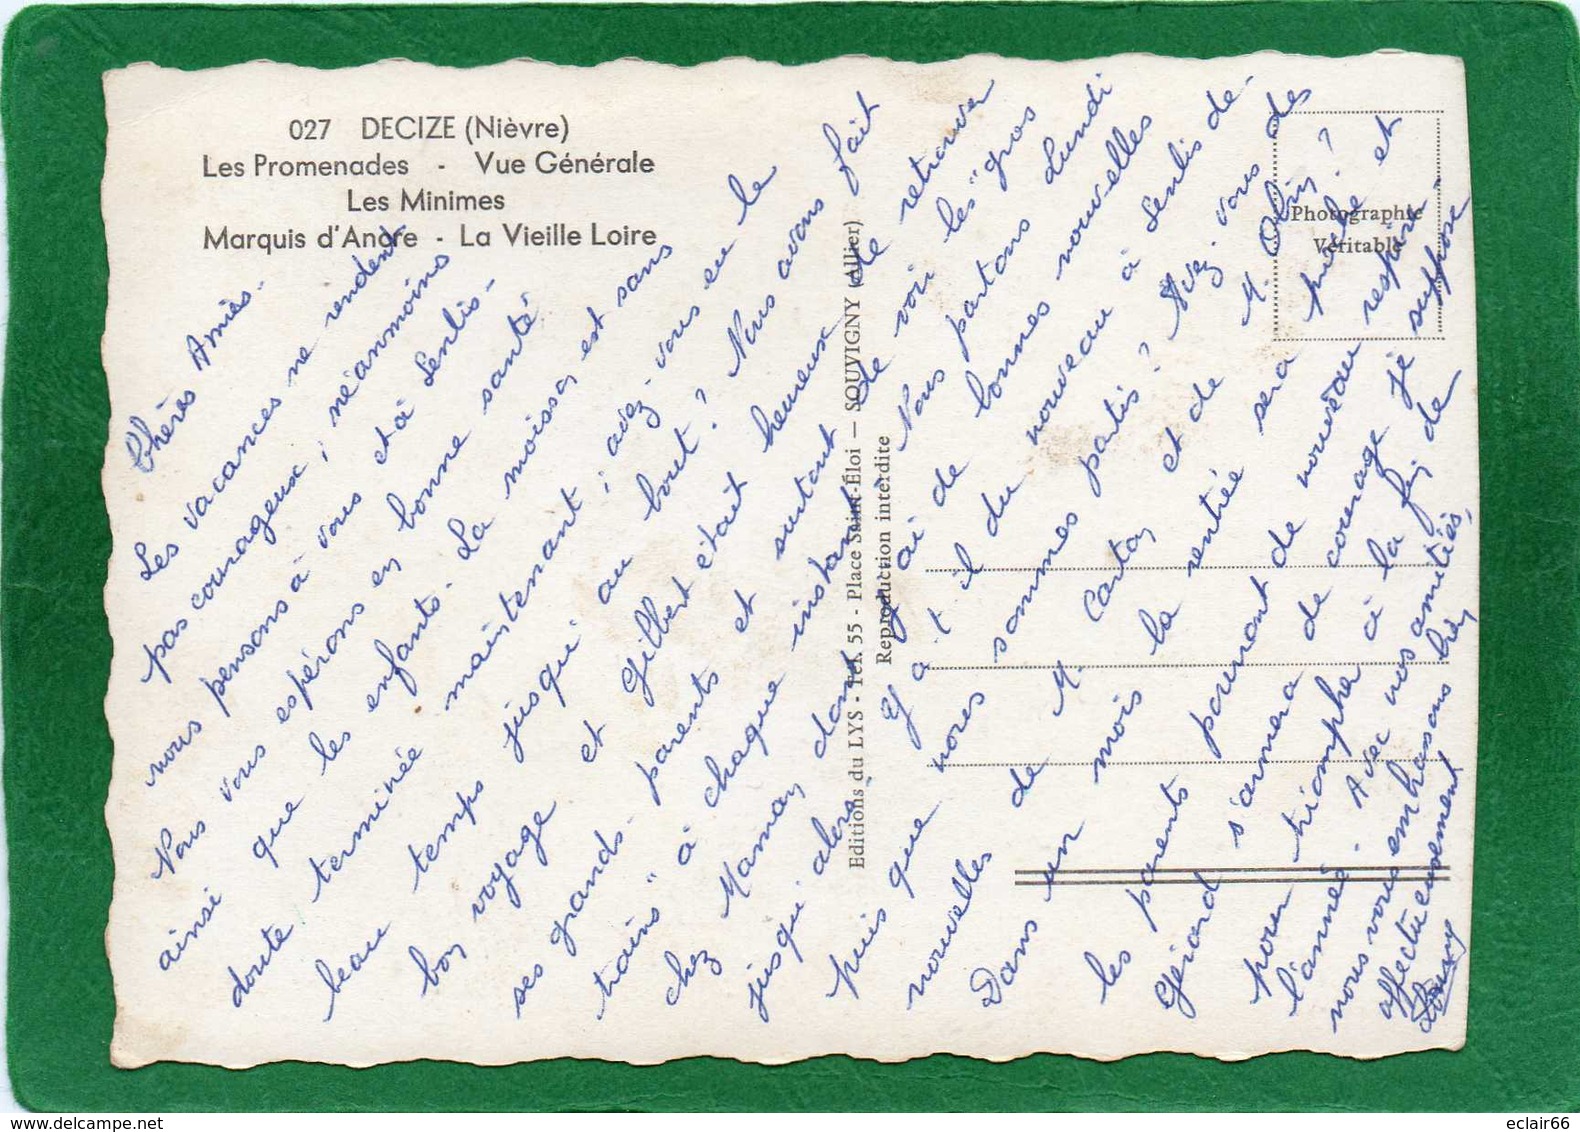 027 DECIZE (Nièvre)
Les Promenades - Vue Générale
Les Minimes
Marquis d'Ancre - La Vieille Loire
Photographie
Véritable
Editions du LYS - Tél. 55 - Place Saint-Éloi — SOUVIGNY (Allier)
Reproduction interdite
Chères Amies.
Les vacances ne rendent
pas courageux, néanmoins
nous pensons à vous et à Senlis.
Nous vous espérons en bonne santé
ainsi que les enfants. La moisson est sans
doute terminée maintenant ; avez-vous eu le
beau temps jusqu'au bout ? Nous avons fait
bon voyage et Gilbert était heureux de retrouver
ses grands-parents et surtout de voir les "gros
trains" à chaque instant. Nous partons Lundi
chez Maman dont j'ai de bonnes nouvelles
jusqu'alors. Y a-t-il du nouveau à Senlis de-
puis que nous sommes partis ? Avez-vous des
nouvelles de M. Carton et de M. ?
Dans un mois la rentrée sera proche et
les parents pourront de nouveau respirer
Gérard s'armera de courage je suppose
pour triompher à la fin de
l'année. Avec nos amitiés,
nous vous embrassons bien
affectueusement
eclair66